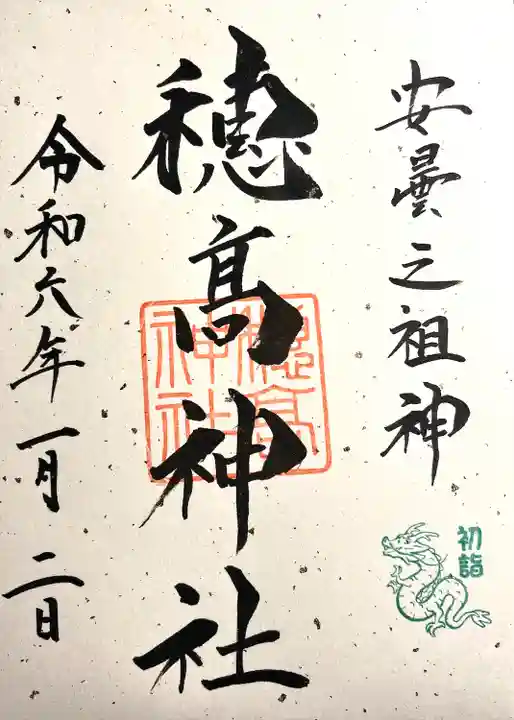 安曇之祖神
初詣
穂高神社
穂髙神社
令和六年一月二日